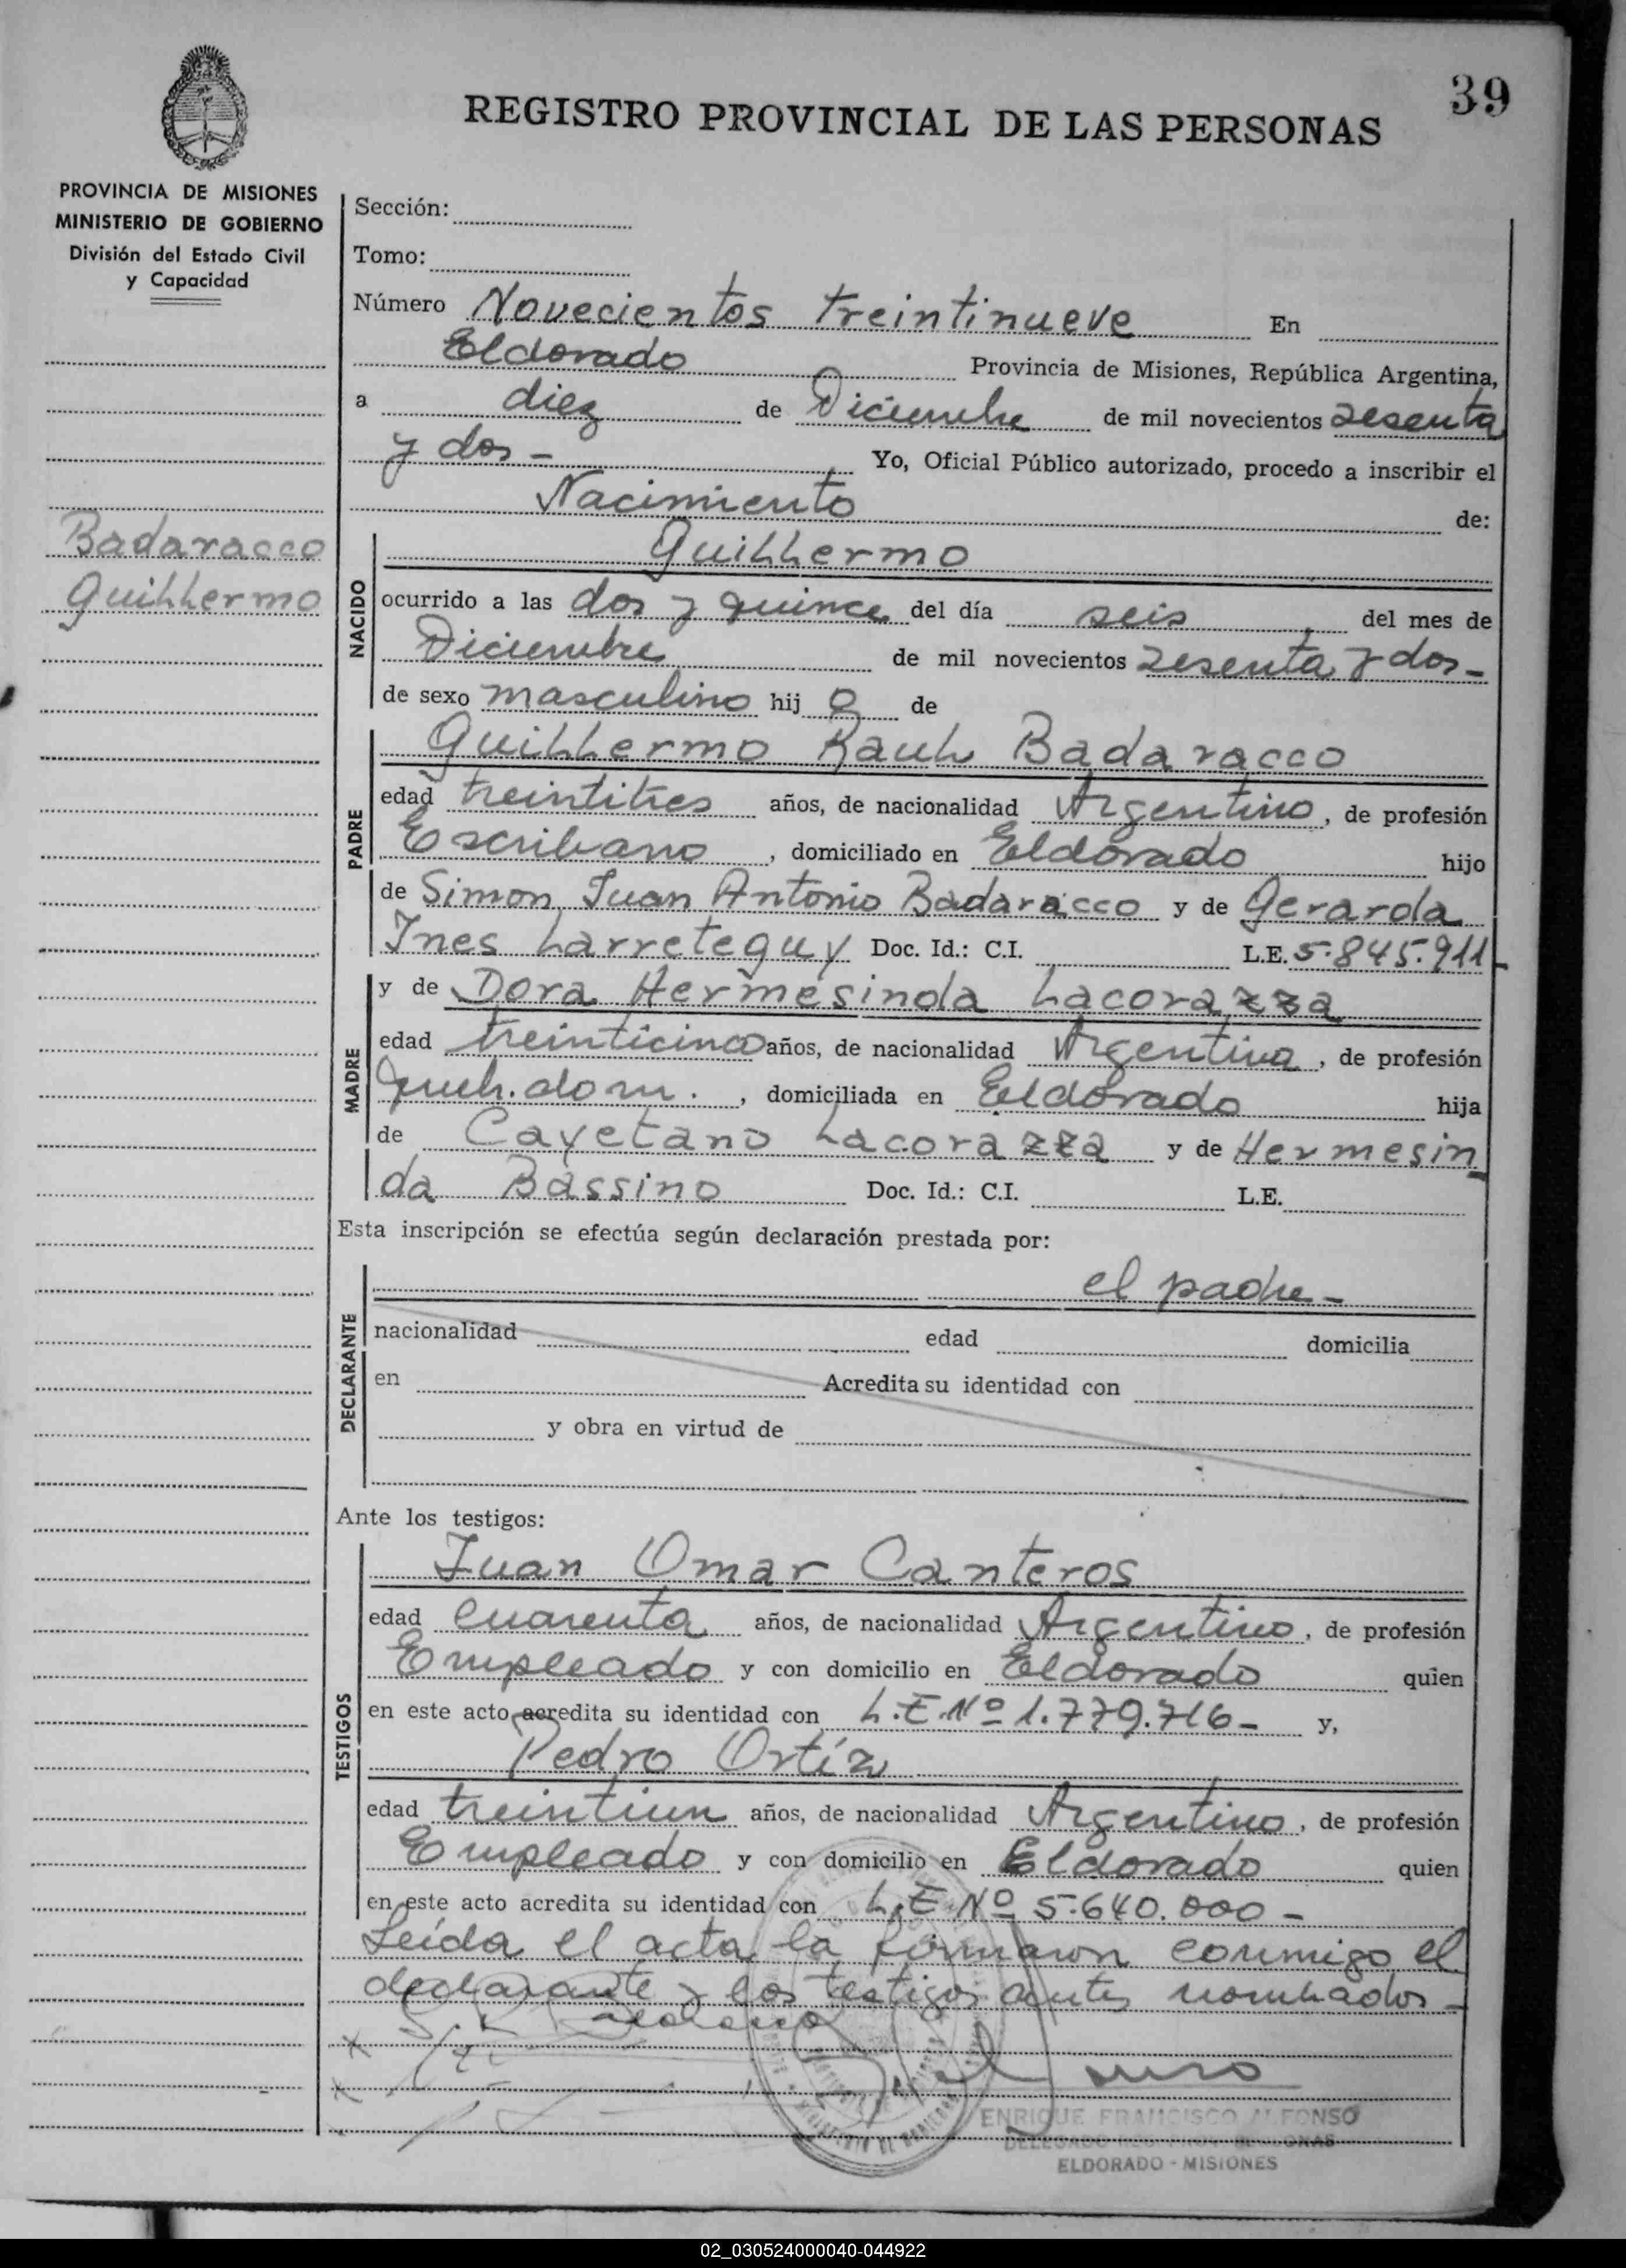 39
REGISTRO PROVINCIAL DE LAS PERSONAS
PROVINCIA DE MISIONES
MINISTERIO DE GOBIERNO
División del Estado Civil
y Capacidad
Sección:
Tomo:
Número Novecientos treintinueve En
Eldorado Provincia de Misiones, República Argentina,
a diez de Diciembre de mil novecientos sesenta
y dos - Yo, Oficial Público autorizado, procedo a inscribir el
Nacimiento de:
Badaracco
Guillermo
NACIDO
Guillermo
ocurrido a las dos y quince del día seis del mes de
Diciembre de mil novecientos sesenta y dos -
de sexo masculino hij o de
PADRE
Guillermo Raul Badaracco
edad treintitres años, de nacionalidad Argentino, de profesión
Escribano, domiciliado en Eldorado hijo
de Simon Juan Antonio Badaracco y de Gerarda
Ines Larreteguy Doc. Id.: C.I. L.E. 5.845.911
MADRE
y de Dora Hermesinda Lacorazza
edad treinticinco años, de nacionalidad Argentina, de profesión
queh. dom., domiciliada en Eldorado hija
de Cayetano Lacorazza y de Hermesin
da Bassino Doc. Id.: C.I. L.E.
Esta inscripción se efectúa según declaración prestada por:
DECLARANTE
el padre -
nacionalidad edad domicilia
en Acredita su identidad con
y obra en virtud de
Ante los testigos:
TESTIGOS
Juan Omar Canteros
edad cuarenta años, de nacionalidad Argentino, de profesión
Empleado y con domicilio en Eldorado quien
en este acto acredita su identidad con L.E. Nº 1.779.716 - y,
Pedro Ortíz
edad treintiun años, de nacionalidad Argentino, de profesión
Empleado y con domicilio en Eldorado quien
en este acto acredita su identidad con L.E. Nº 5.640.000 -
Leída el acta la firmaron conmigo el
declarante y los testigos antes nombrados -
ENRIQUE FRANCISCO ALFONSO
ELDORADO - MISIONES
02_030524000040-044922